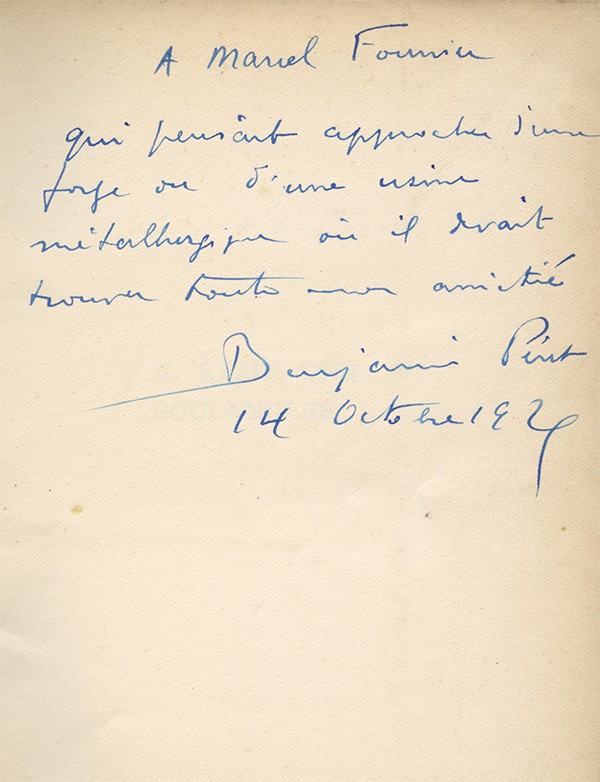 A Marcel Fournier
qui pensait approcher d'une
forge ou d'une usine
métallurgique où il devait
trouver toute mon amitié
Benjamin Péret
14 Octobre 192